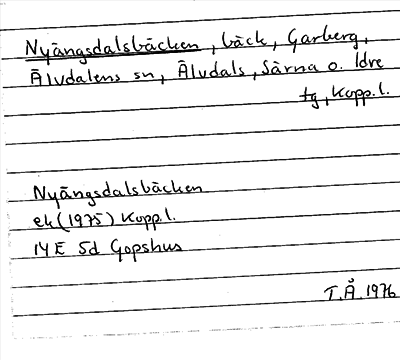 Nyängsdalsbäcken, bäck, Garberg,
Älvdalens sn, Älvdals, Särna o. Idre
tg, Kopp.l.
Nyängsdalsbäcken
ek (1975) Kopp.l.
14E 5d Gopshus
T.Å. 1976